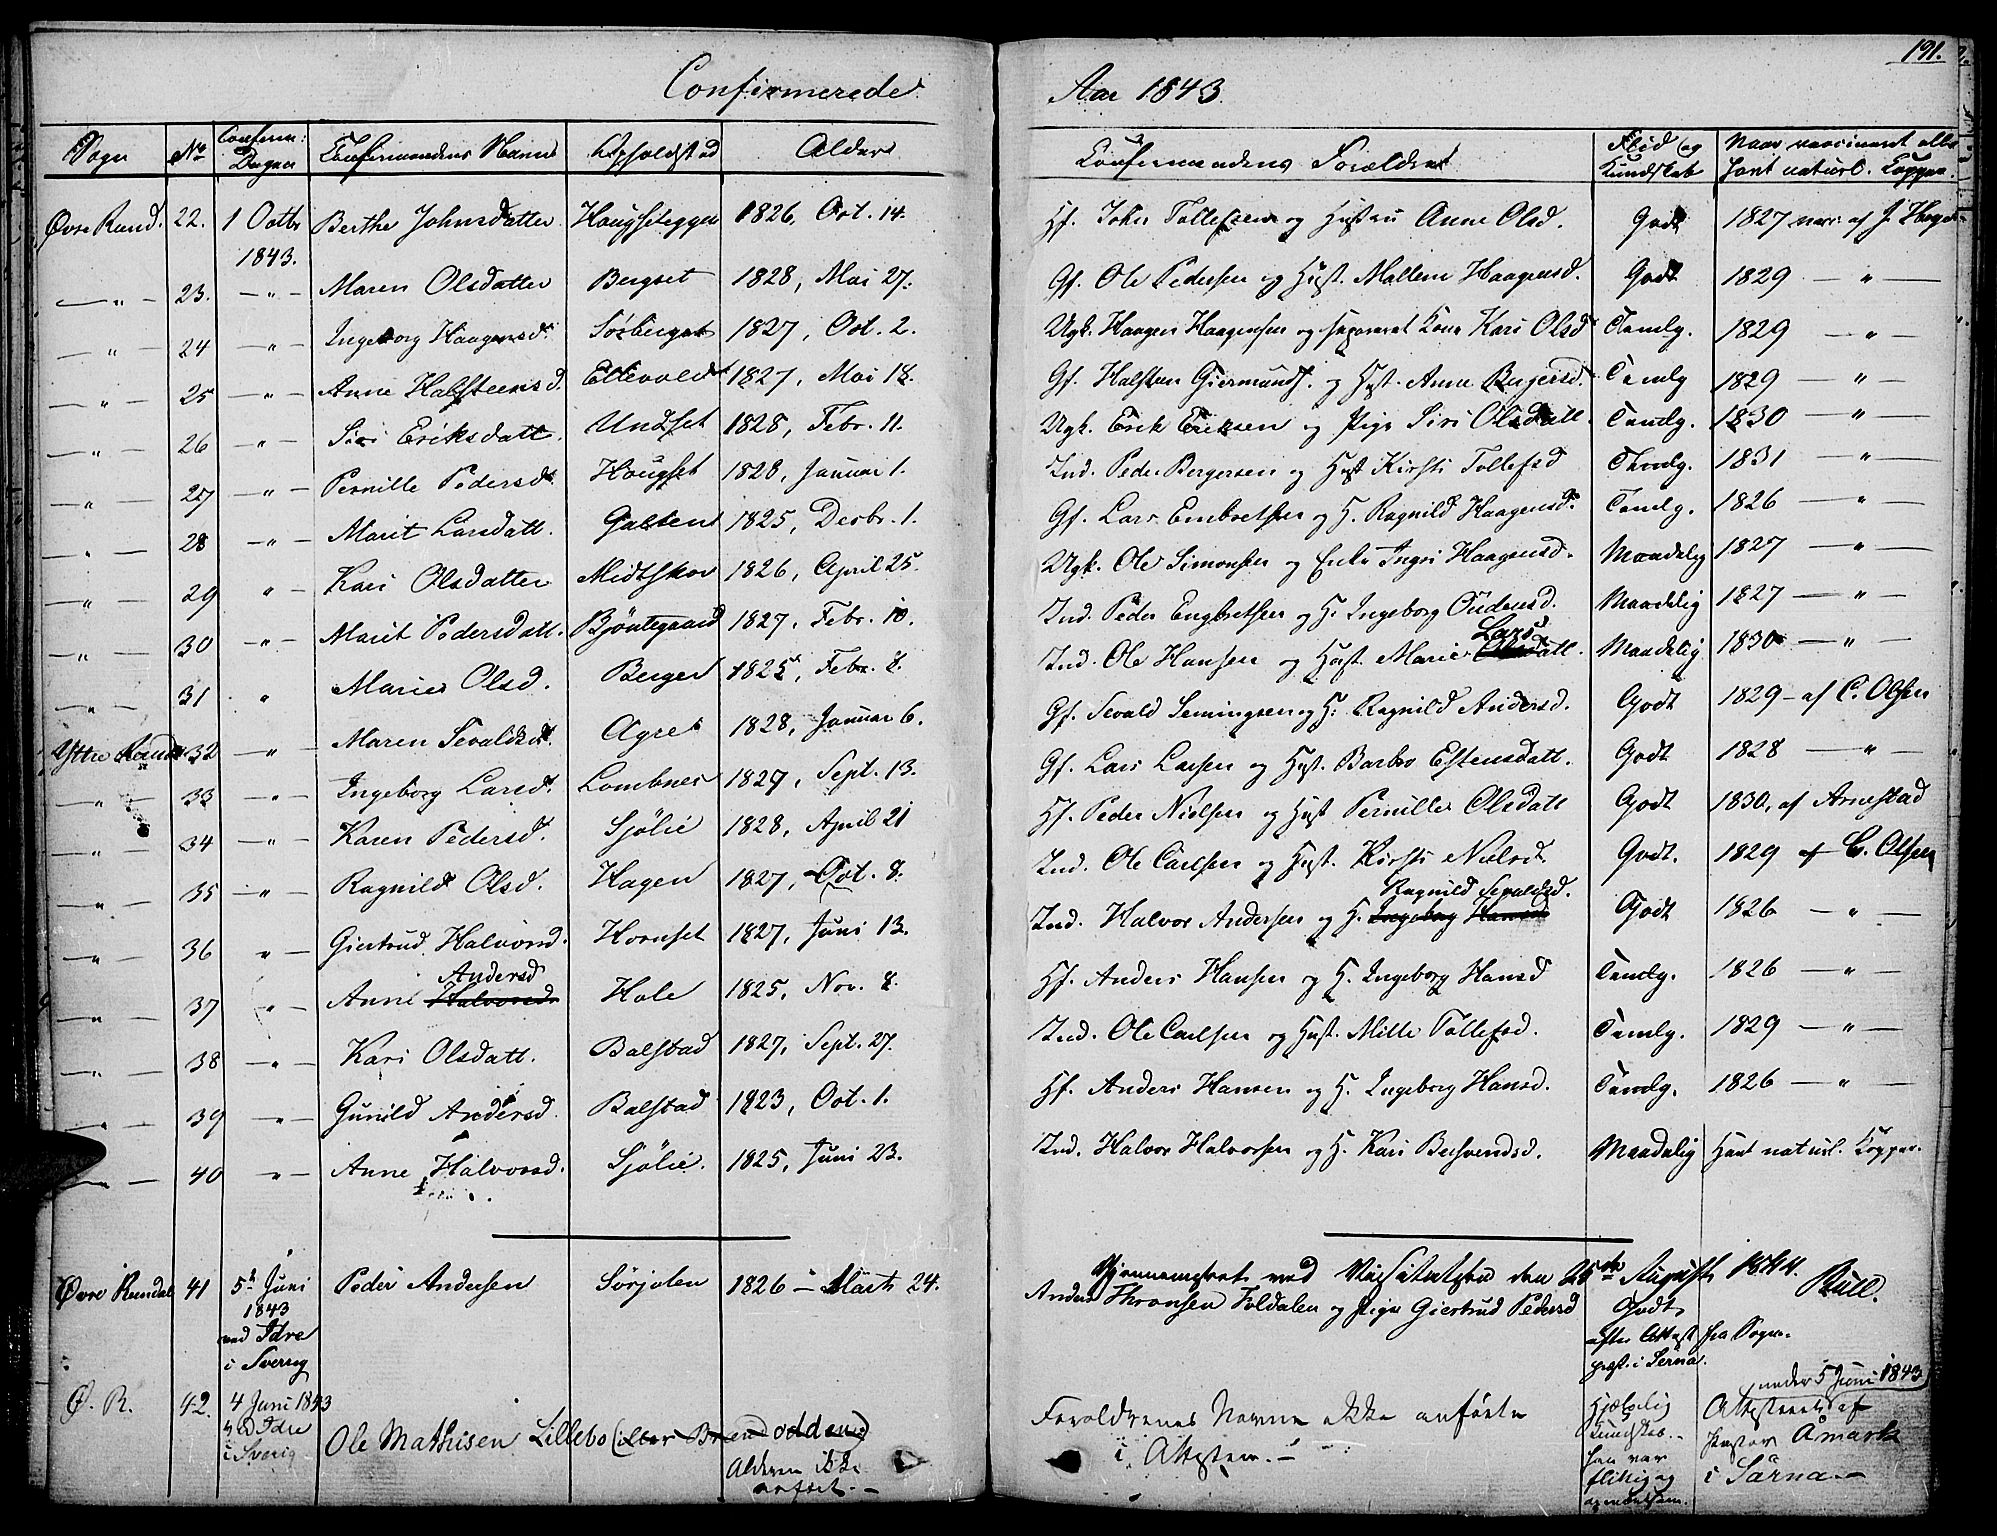 191.
Confirmerede Aar 1843.
Sogn No Conferm: Dagen Confirmandens Navn Opholdsted Alder Confirmandens Forældre Flid og Kundskab Naar vaccineret eller havt naturl. Kopper.
Øvre Rend. 22. 1 Octb 1843. Berthe Johnsdatter Haugseteggen 1826, Oct. 14. Hf. John Tollefsen og Hustru Anne Olsd. Godt 1827 vacc. af J.
— " — 23. — " — Maren Olsdatter Bergset 1828, Mai 27. Gf. Ole Pedersen og Hust. Mallene Haagensd. Godt 1829 — " —
— " — 24 — " — Ingeborg Haagensd. Sörberget 1827, Oct. 2. Ugk. Haagen Haagensen og separeret Kone Kari Olsd Temlg. 1829 — " —
— " — 25 — " — Anne Halfsteensd. Ellevold 1827, Mai 18. Gf. Halsten Giermunds. og Hust. Anne Bergersd. Temlg 1829 — " —
— " — 26 — " — Siri Eriksdatt. Undset 1828, Febr. 11. Ugk. Erik Eriksen og Pige Siri Olsdatt. Temlg. 1830 — " —
" — 27 — " — Pernille Pedersd. Haugset 1828, Januar 1. Ind. Peder Bergersen og Hust Kirsti Tollefsd Temlg. 1831 — " —
— " — 28 — " — Marit Larsdatt. Galten 1825, Decbr. 1. Gf. Lars Embretsen og H. Ragnild Haagensd. Temlg. 1826 — " —
— " — 29 " — Kari Olsdatter Midtskov 1826, April 25. Ugk. Ole Simonsen og Enke Ingri Haagensd. Maadelig 1827 — " —
— " — 30 — " — Marit Pedersdatt. Bjöntegaard 1827, Febr. 10. Ind. Peder Engbretsen og H. Ingeborg Oudensd. Maadelig 1827 — " —
— " — 31 " Marie Olsd. Berger 1825, Febr. 8. Ind. Ole Hansen og Hust. Marie Larsdatt. Maadelig 1830 — " —
Yttre Rend. 32 — " — Maren Sevaldsd. Agre 1828, Januar 6. Gf. Sevald Semingsen og H. Ragnild Andersd. Godt 1829 — af C. Olsen
— " — 33 — " — Ingeborg Larsd. Lombnes 1827, Sept. 13. Gf. Lars Larsen og Hust. Barbro Estensdatt. Godt 1828 — " —
— " — 34 — " — Karen Pedersd. Sjölie 1828, April 21 Hf. Peder Nielsen og Hust Pernille Olsdatt Godt 1830, af Arnestad
— " — 35 — " — Ragnild Olsd. Hagen 1827, Oct. 8. Ind. Ole Carlsen og Hust. Kirsti Nielsd. Godt. 1829 af C. Olsen
— " — 36 " — Giertrud Halvorsd. Hornset 1827, Juni 13. Ind. Halvor Andersen og H. Ingeborg Hansd Ragnild Sevaldsd. Godt 1826 — " —
— " — 37 " — Anne Halvorsd. Andersd Hole 1825, Nov. 8. Hf. Anders Hansen og H. Ingeborg Hansd Temlg. 1826 — " —
— " — 38 — " — Kari Olsdatt. Balstad 1827, Sept. 27. Ind. Ole Carlsen og Hust. Mille Tollefsd. Temlg. 1829 — " —
— " — 39 — " — Gunild Andersd. Balstad 1823, Oct. 1. Hf. Anders Hansen og H. Ingeborg Hansd. Temlg. 1826 — " —
— " — 40 — " — Anne Halvorsd. Sjölie. 1825, Juni 23. Ind. Halvor Halvorsen og H. Kari Maadelig Havt naturl. Kopper.
Gjennemseet ved Visitatsen den 25de August 1844. Bull.
Øvre Rendal 41 5t Juni 1843 ved Idre i Sverrig Peder Andersen Sörjolen 1826 — Marts 24. Anders Thronsen Foldalen og Pige Giertrud Pedersd Godt efter Attest fra Sogne-præst. i Serna.
Ø. R. 42. 4 Juni 1843 ved Idre i Sverig Ole Mathisen Lillebo (eller Brændodden) Alderen ikke anført. — Forældrenes Navne ikke anförte i Attesten. — Hjælpelig Kundskab. — han var flittig og Attesteret af Pastor Åmark i Särna. — under 5 Juni 1843